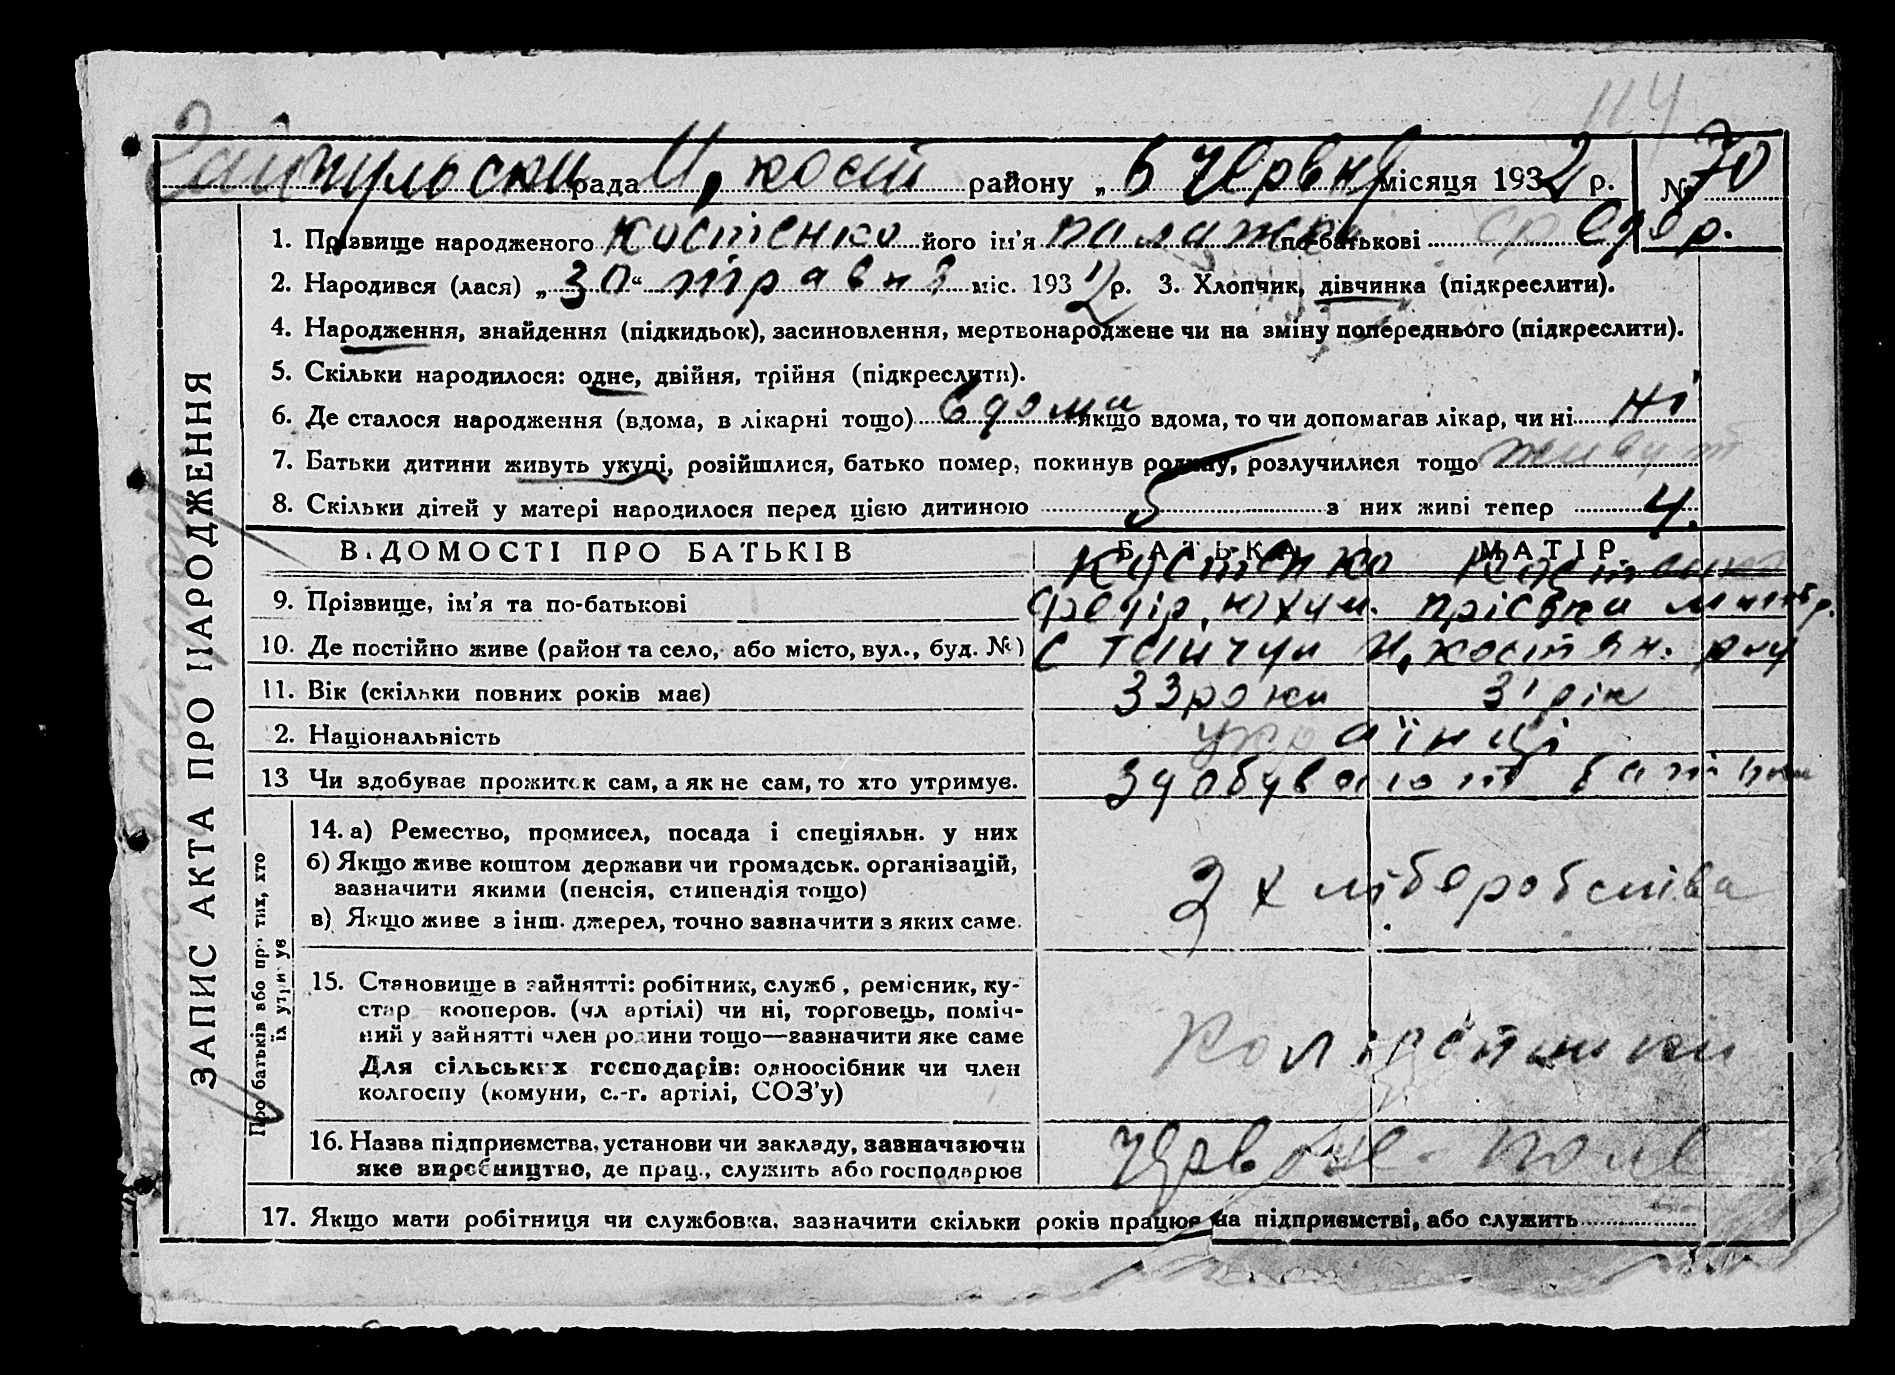 114
рада М, кост району „ 6 червня місяця 1932 р. № 70
1. Прізвище народженого Костенко його ім'я Палажка по-батькові Федор.
2. Народився (лася) „30“ травня міс. 1932 р. 3. Хлопчик, дівчинка (підкреслити).
4. Народження, знайдення (підкидьок), засиновлення, мертвонароджене чи на зміну попереднього (підкреслити).
5. Скільки народилося: одне, двійня, трійня (підкреслити).
6. Де сталося народження (вдома, в лікарні тощо) вдома якщо вдома, то чи допомагав лікар, чи ні ні
7. Батьки дитини живуть укупі, розійшлися, батько помер, покинув родину, розлучилися тощо живут
8. Скільки дітей у матері народилося перед цією дитиною 5 з них живі тепер 4.
ЗАПИС АКТА ПРО НАРОДЖЕННЯ
ВІДОМОСТІ ПРО БАТЬКІВ БАТЬКА МАТІР
Костенко Костенко
9. Прізвище, ім'я та по-батькові Федір, Юхим. Пріська
10. Де постійно живе (район та село, або місто, вул., буд. №) с М, костян. р-ну
11. Вік (скільки повних років має) 33 роки 31 рік
2. Національність українці
13 Чи здобуває прожиток сам, а як не сам, то хто утримує. Здобувают батьки
Про батьків або про тих, хто їх утримує
14. а) Ремество, промисел, посада і спеціяльн. у них
б) Якщо живе коштом держави чи громадськ. організацій,
зазначити якими (пенсія, стипендія тощо)
в) Якщо живе з інш. джерел, точно зазначити з яких саме.
З хліборобства
15. Становище в зайнятті: робітник, служб, ремісник, ку-
стар кооперов. (чл артілі) чи ні, торговець, поміч-
ний у зайнятті член родини тощо—зазначити яке саме
Для сільських господарів: одноосібник чи член
колгоспу (комуни, с.-г. артілі, СОЗ'у)
Колгоспники
16. Назва підприємства, установи чи закладу, зазначаючи
яке виробництво, де прац., служить або господарює
Червоне поле
17. Якщо мати робітниця чи службовка, зазначити скільки років працює на підприємстві, або служить